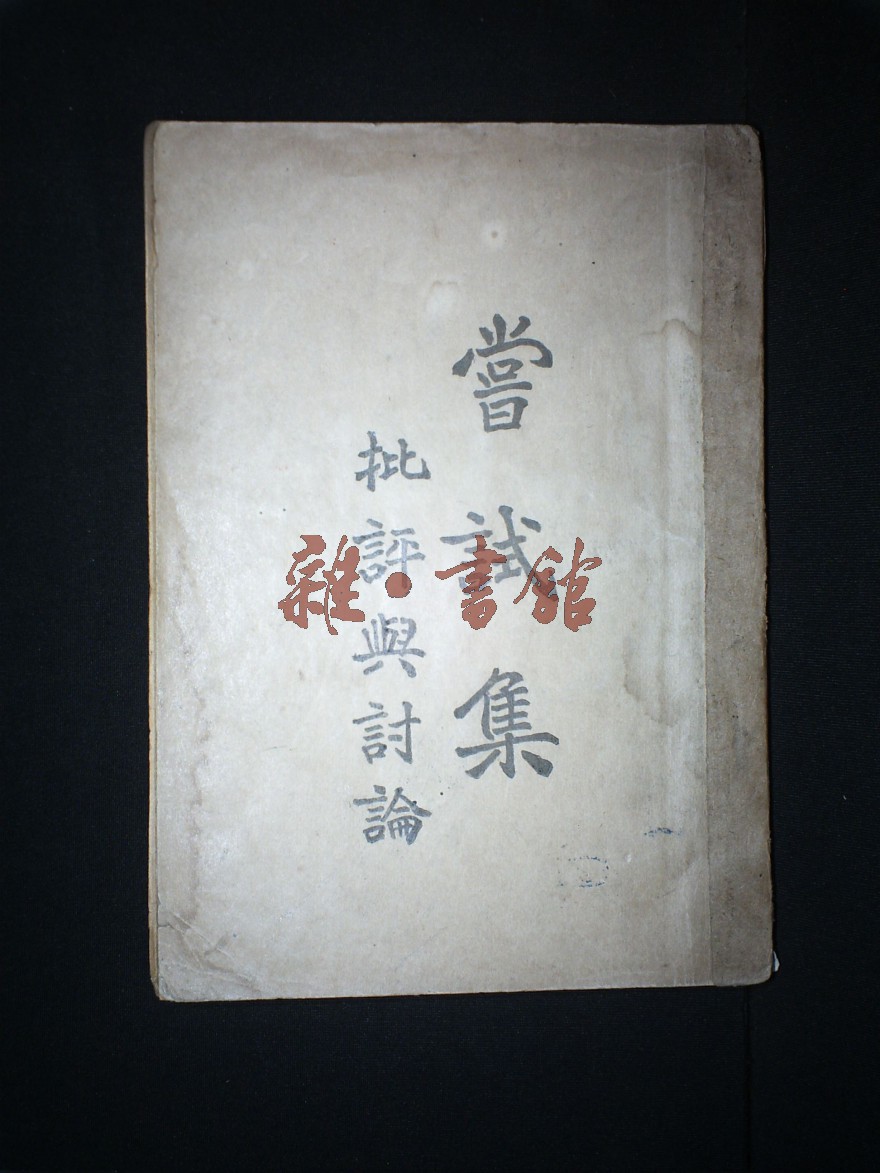 嘗試集
批評與討論
雜·書館